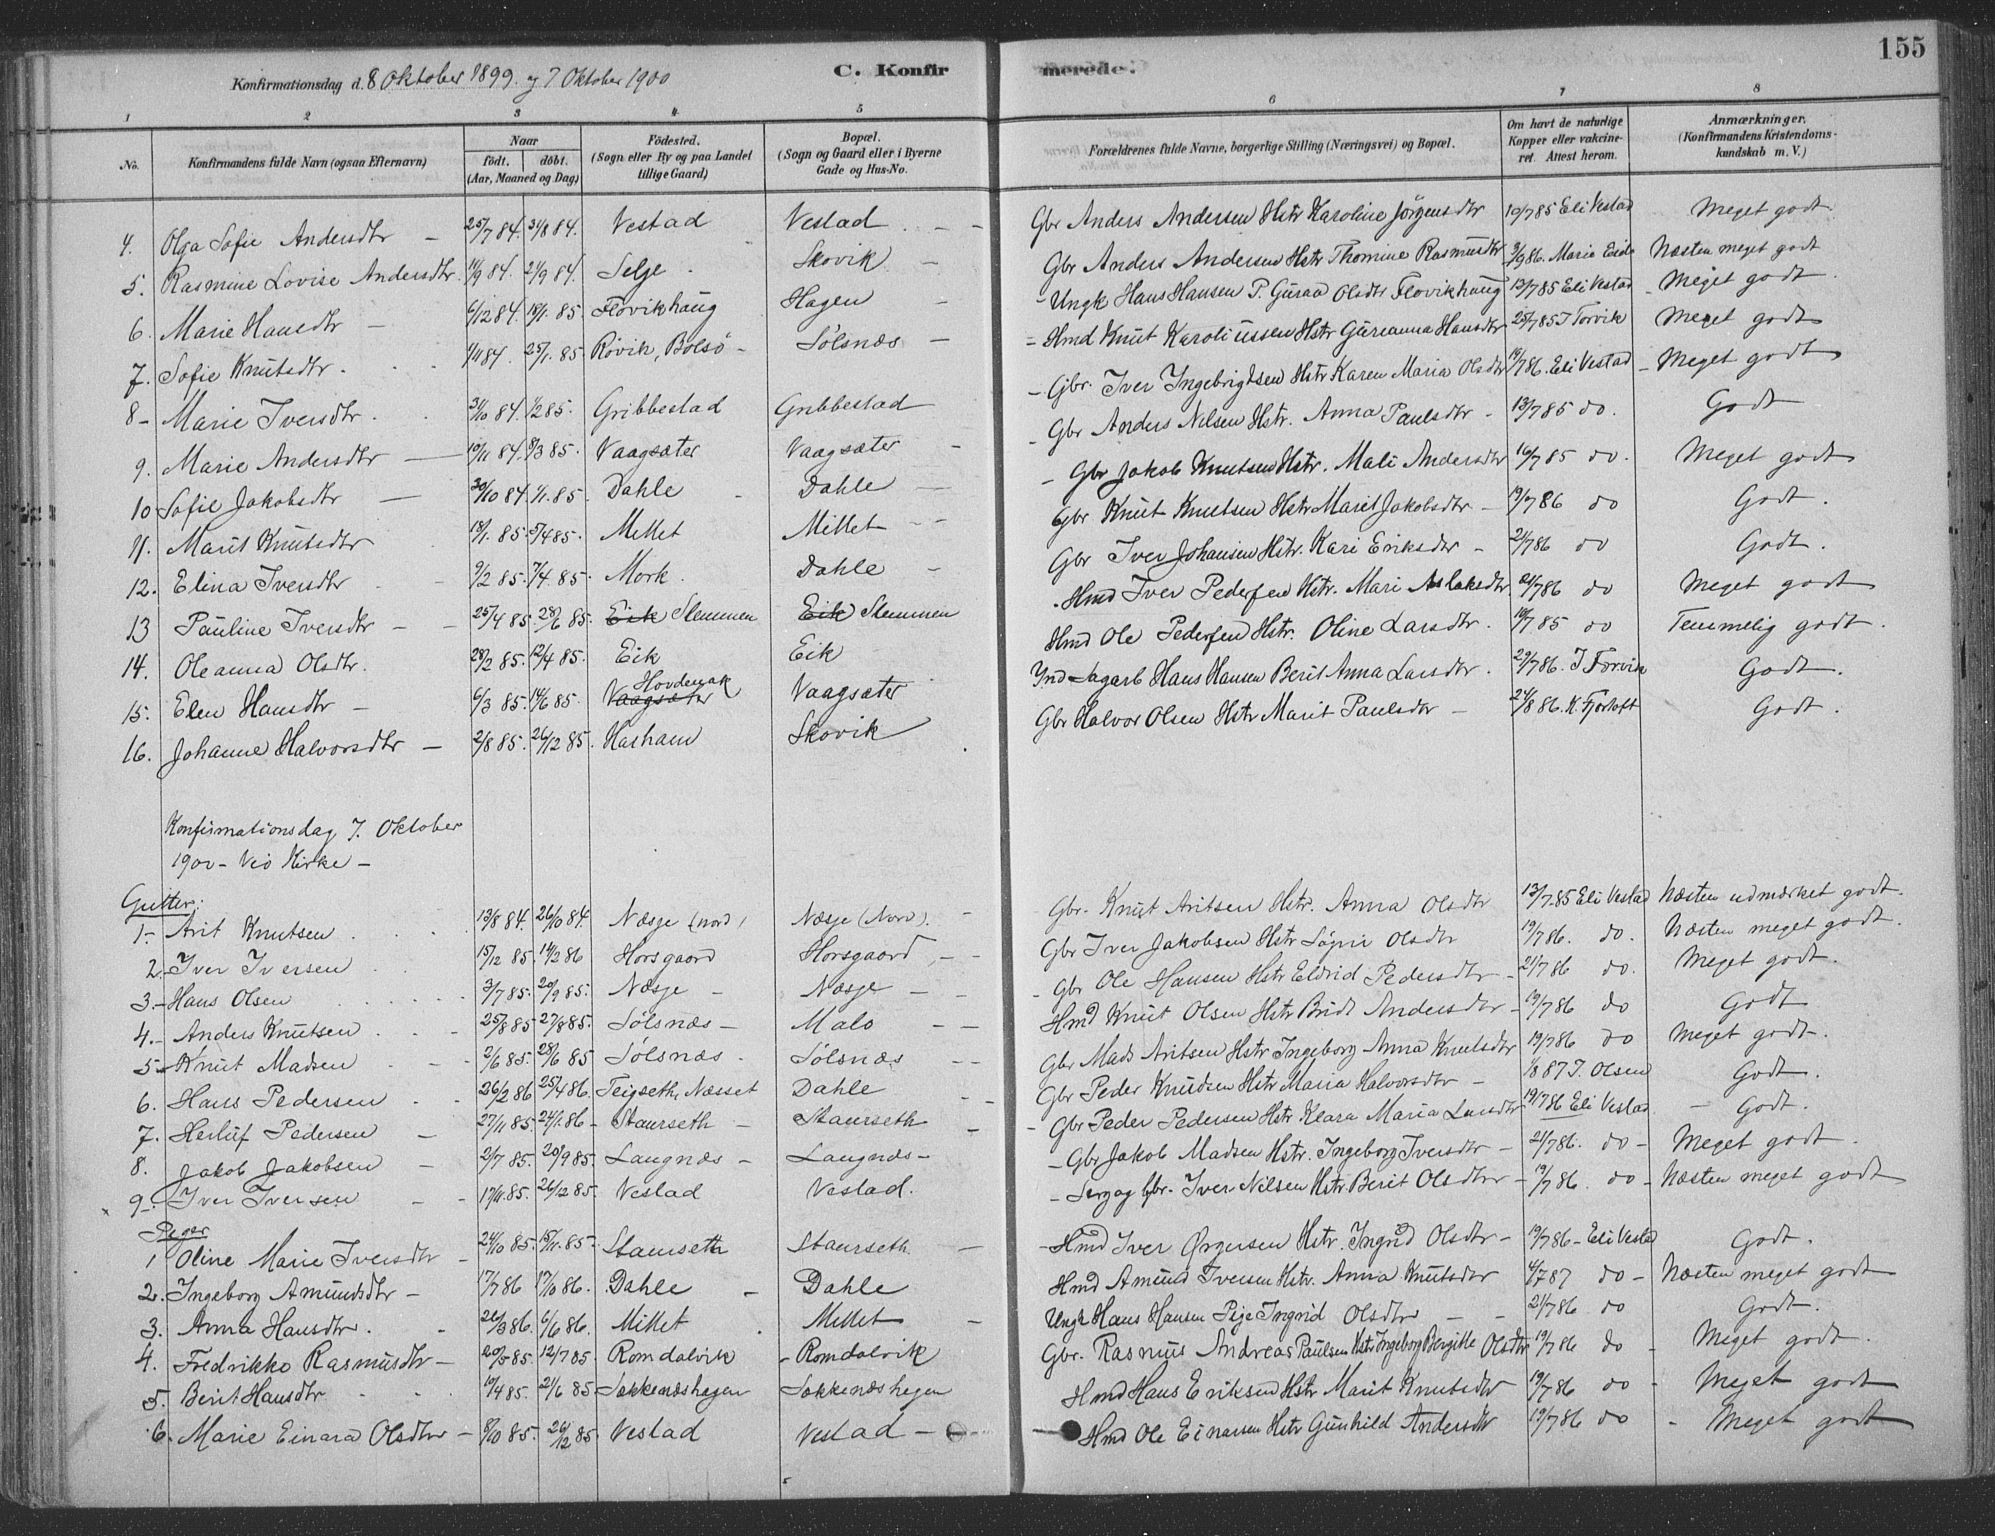 155
Konfirmationsdag d. 8 Oktober 1899. og 7 Oktober 1900
C. Konfirmerede.
1 2 3 4 5 6 7 8
No. Konfirmandens fulde Navn (ogsaa Efternavn) Naar födt. döbt. (Aar, Maaned og Dag) Födested. (Sogn eller By og paa Landet tillige Gaard) Bopæl. (Sogn og Gaard eller i Byerne Gade og Hus-No. Forældrenes fulde Navne, borgerlige Stilling (Næringsvei) og Bopæl. Om havt de naturlige Kopper eller vakcineret. Attest herom. Anmærkninger. (Konfirmandens Kristendomskundskab m. V.)
4. Olga Sofie Andersdtr 25/7 84. 31/8 84. Vestad Vestad Gbr Anders Andersen Hstr Karoline Jörgensdtr 10/7 85 Eli Vestad Meget godt.
5. Rasmine Lovise Andersdtr. 14/9 84. 21/9 84. Selje Skovik Gbr Anders Andersen Hstr Thomine Rasmusdtr 3/9 86. Marie Eide Næsten meget godt
6. Marie Hansdtr 6/12 84. 18/1. 85. Flovikhaug Hagen Ungk Hans Hansen P. Guraa Olsdtr Flovikhaug 13/7 85 Eli Vestad Meget godt
7. Sofie Knutsdtr. 1/11 84. 25/1. 85. Rövik, Bolsö Sölsnæs Hmd Knut Karoliussen Hstr Gurianna Hansdtr 25/7 85 I Torvik Meget godt
8 Marie Iversdtr. 31/10 84. 1/2 85. Gribbestad Gribbestad Gbr. Iver Ingebrigtsen Hstr Karen Maria Olsdtr 19/7 86. Eli Vestad Meget godt
9. Marie Andersdtr 10/11 84. 8/3 85. Vaagsæter Vaagsæter Gbr Anders Nilsen Hstr. Anna Paulsdtr 13/7 85 do. Godt
10 Sofie Jakobsdtr 30/10 84. 1/1. 85. Dahle Dahle Gbr Jakob Knutsen Hstr. Mali Andersdtr 16/7 85 do. Meget godt
11. Marit Knutsdtr 18/1. 85. 5/4 85. Mittet Mittet Gbr Knut Knutsen Hstr Marit Jakobsdtr 19/7 86 do Godt.
12. Elina Iversdtr 9/2 85. 7/4 85. Mork. Dahle Gbr Iver Johansen Hstr. Kari Eriksdtr 21/7 86 do Godt.
13 Pauline Iversdtr 25/4 85. 28/6 85. Eik Slemmen Eik Slemmen Hmd Iver Pedersen Hstr. Mari Aslaksdtr 21/7 86 do Meget godt
14. Oleanna Olsdtr. 28/2 85. 12/4 85. Eik Eik Hmd Ole Pedersen Hstr. Oline Larsdtr. 10/7 85 do Temmelig godt.
15. Elen Hansdtr 6/3 85. 14/6 85. Vaagsæter Hovdenak Vaagsæter Ind Dagarb Hans Hansen Berit Anna Larsdtr. 29/7 86. I Torvik Godt.
16. Johanne Halvorsdtr 2/8 85. 26/12 85. Hasham Skovik Gbr Halvor Olsen Hstr Marit Paulsdtr 24/8 86. K. Fjörtoft Godt.
Konfirmationsdag 7. Oktober
1900 - Veö Kirke -
Gutter:
1. Arit Knutsen 13/8 84. 26/10 84. Næsje (nord) Næsje (Nord). Gbr. Knut Aritsen Hstr. Anna Olsdtr 13/7. 85 Eli Vestad Næsten udmærket godt.
2 Iver Iversen 15/12 85. 14/2 86 Horsgaard Horsgaard Gbr Iver Jakobsen Hstr Sögni Olsdtr 19/7 86. do. Næsten meget godt.
3. Hans Olsen 3/7 85. 20/9 85. Næsje Næsje Gbr Ole Hansen Hstr Eldrid Pedersdtr 21/7 86 do. Meget godt.
4. Anders Knutsen 25/8 85 27/8 85. Sölsnæs Malo Hmd Knut Olsen Hstr Brit Andersdtr 19/7 86 do Godt
5 Knut Madsen 2/6 85. 28/6 85 Sölsnæs Sölsnæs Gbr Mads Aritsen Hstr Ingeborg Anna Knutsdtr 19/7 86 do Meget godt.
6. Hans Pedersen 26/2 86 25/4 86. Teigseth, Næsset Dahle Gbr Peder Knudsen Hstr Maria Halvorsdtr 1/8 87 T. Olsen Godt.
7. Herluf Pedersen 27/11 85. 24/1. 86 Staurseth Staurseth Gbr Peder Pedersen Hstr Klara Maria Larsdtr 19/7 86 Eli Vestad Godt.
8. Jakob Jakobsen 2/7 85. 20/9 85. Laugnæs Laugnæs Gbr Jakob Madsen Hstr. Ingeborg Iversdtr 21/7 86. do Meget godt.
9 Iver Iversen 17/11. 85. 26/12 85. Vestad Vestad. Serg og Gbr. Iver Nilsen Hstr Berit Olsdtr 19/7 86. do Næsten meget godt
Piger
1 Oline Marie Iversdtr 24/10 85. 15/11. 85. Staurseth Staurseth Hmd Iver Örgersen Hstr. Ingrid Olsdtr 19/7 86 Eli Vestad Godt.
2. Ingeborg Amundsdtr 17/7 86 17/10 86. Dahle Dahle Hmd Amund Iversen Hstr. Anna Knutsdtr 4/7 87 do Næsten meget godt
3. Anna Hansdtr. 26/3 86. 6/6 86. Mittet Mittet Ungk Hans Hansen Pige Ingrid Olsdtr 21/7 86 do Godt.
4. Fredrikke Rasmusdtr 20/5 85. 12/7 85. Romdalvik Romdalvik Gbr. Rasmus Andreas Paulsen Hstr Ingeborg Bergitte Olsdtr 19/7 86 do Meget godt.
5. Berit Hansdtr 19/4 85. 21/6 85. Søkkenæshagen Søkkenæshagen Hmd Hans Eriksen Hstr Marit Knutsdtr 19/7 86 do Meget godt
6. Marie Einara Olsdtr 8/10 85. 26/12 85. Vestad Vestad Hmd Ole Einarsen Hstr Gunhild Andersdtr 19/7 86 do Meget godt